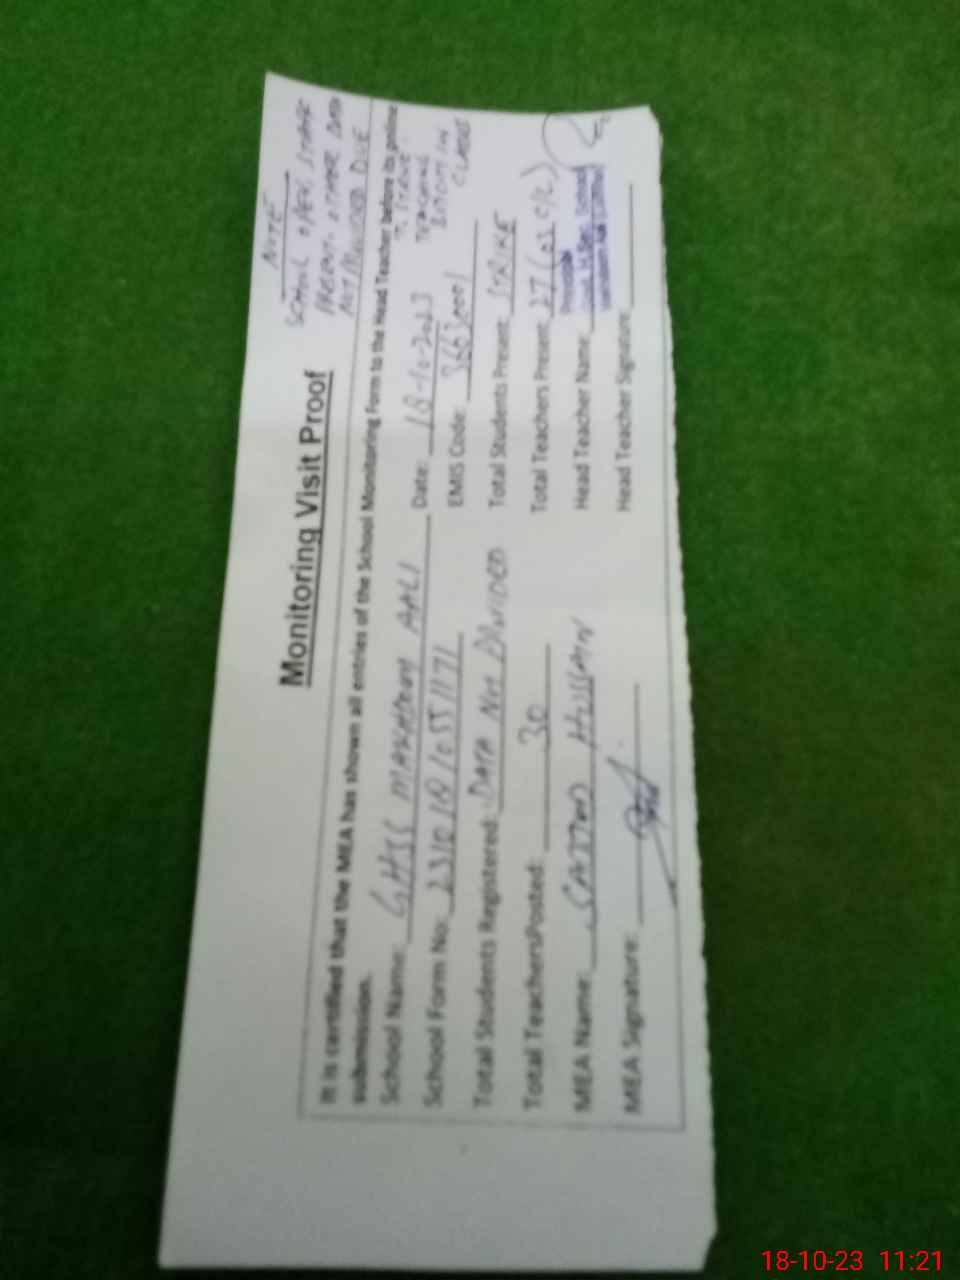 NOTE
SCHOOL OPEN, STAFF
PRESENT. OTHER DATA
NOT PROVIDED DUE
TO STRIKE
TEACHING
IN
CLASS
Monitoring Visit Proof
It is certified that the MEA has shown all entries of the School Monitoring Form to the Head Teacher before its online
submission.
School Name: GHSS MAKHDOOM AALI Date: 18-10-2023
School Form No: EMIS Code:
Total Students Registered: DATA NOT PROVIDED Total Students Present: STRIKE
Total TeachersPosted: 30 Total Teachers Present: 27 (03 C/L)
MEA Name: SAJJAD HUSSAIN Head Teacher Name:
Principal
Govt. H. Sec. School
MEA Signature: Head Teacher Signature:
18-10-23 11:21